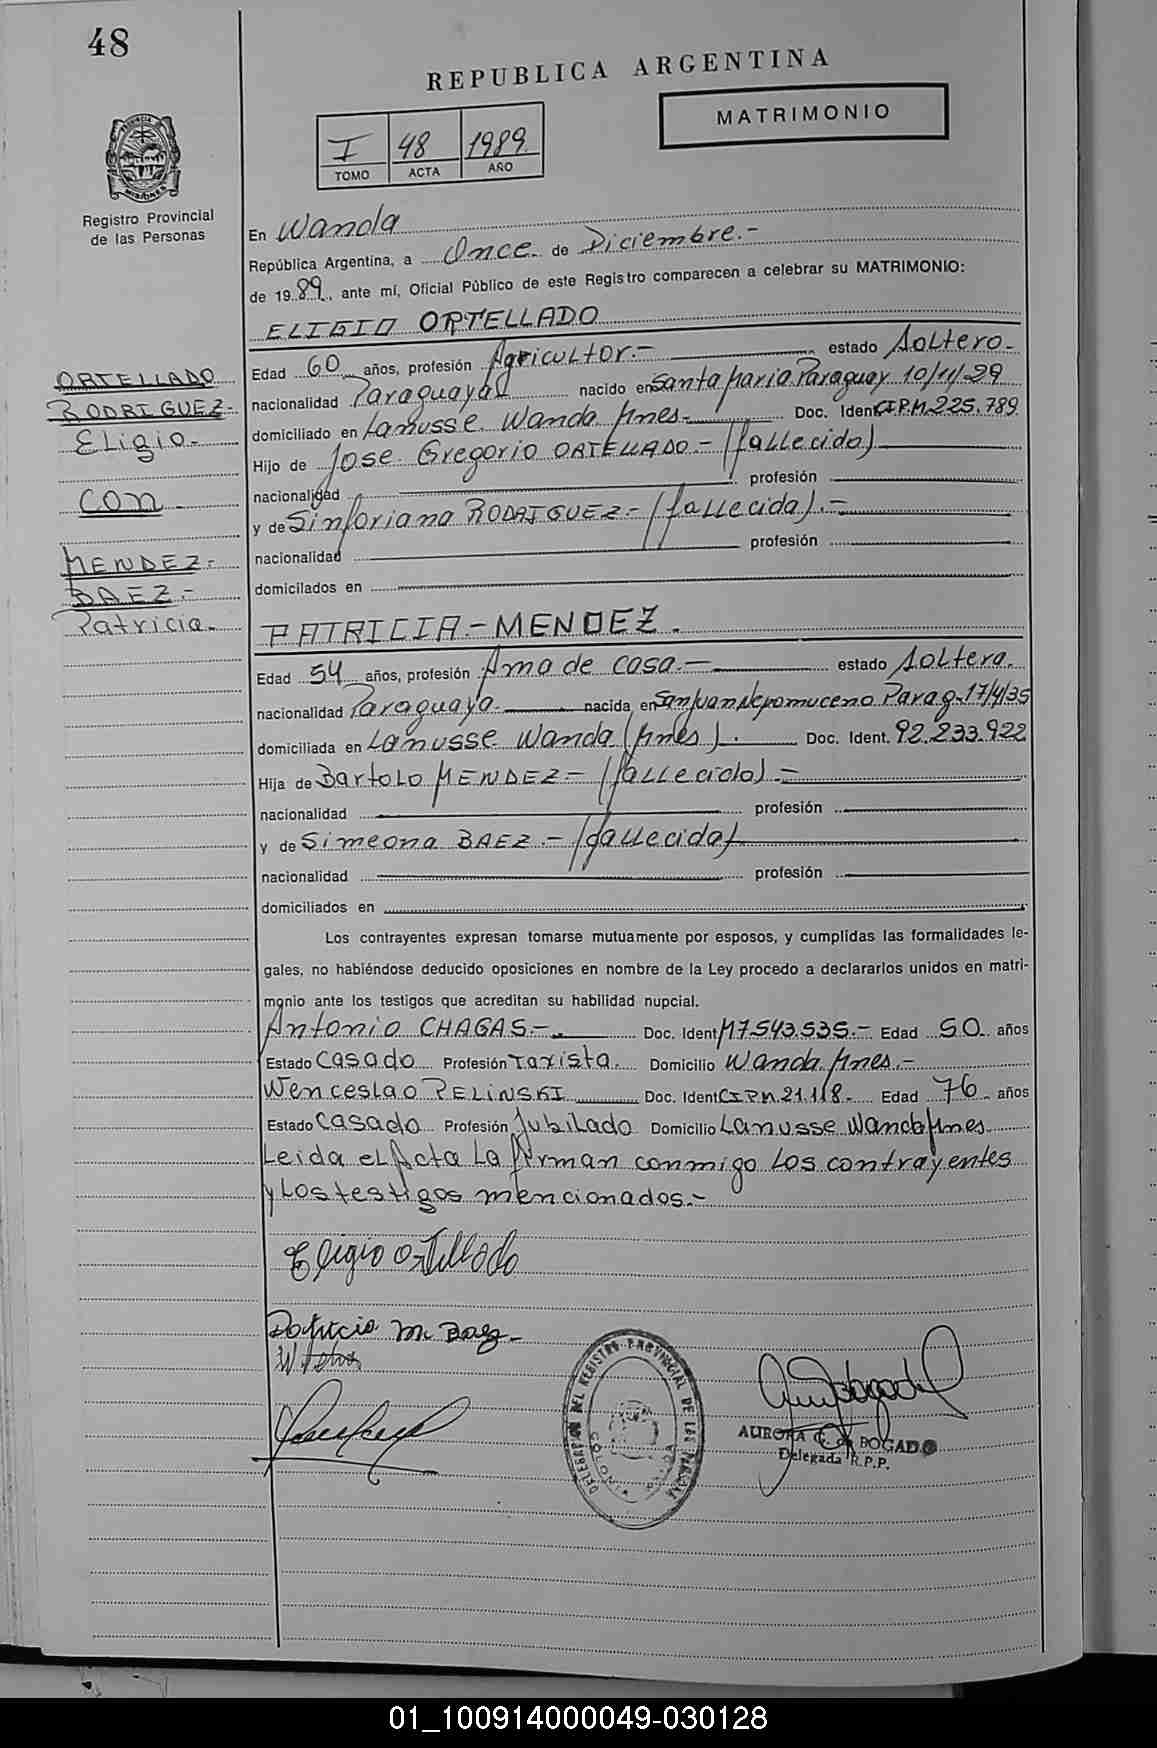 48
REPUBLICA ARGENTINA
MATRIMONIO
I 48 1989
TOMO ACTA AÑO
Registro Provincial
de las Personas
En Wanda
República Argentina, a Once de Diciembre.-
de 1989, ante mí, Oficial Público de este Registro comparecen a celebrar su MATRIMONIO:
ELIGIO ORTELLADO
Edad 60 años, profesión Agricultor.- estado Soltero.-
nacionalidad Paraguaya nacido en Santa Maria Paraguay 10/11/29
domiciliado en Lanusse Wanda Mnes.- Doc. Ident. C.I.P.M. 225.789
Hijo de Jose Gregorio ORTELLADO.- (fallecido)
nacionalidad profesión
y de Sinforiana RODRIGUEZ.- (fallecida).-
nacionalidad profesión
domicilados en
ORTELLADO
RODRIGUEZ.-
Eligio.-
con
MENDEZ.-
BAEZ.-
Patricia.-
PATRICIA.- MENDEZ.
Edad 54 años, profesión Ama de casa.- estado Soltera.
nacionalidad Paraguaya. nacida en San Juan Nepomuceno Parag. 17/4/35
domiciliada en Lanusse Wanda (Mnes). Doc. Ident. 92.233.922
Hija de Bartolo MENDEZ.- (fallecido).-
nacionalidad profesión
y de Simeona BAEZ.- (fallecida)
nacionalidad profesión
domiciliados en
Los contrayentes expresan tomarse mutuamente por esposos, y cumplidas las formalidades le-
gales, no habiéndose deducido oposiciones en nombre de la Ley procedo a declararlos unidos en matri-
monio ante los testigos que acreditan su habilidad nupcial.
Antonio CHAGAS.-. Doc. Ident M7.543.535.- Edad 50 años
Estado Casado Profesión Taxista. Domicilio Wanda Mnes.-
Wenceslao PELINSKI Doc. Ident C.I.P.M. 21.118.- Edad 76 años
Estado Casado Profesión Jubilado Domicilio Lanusse Wanda Mnes.
Leida el Acta La firman conmigo Los contrayentes
y Los testigos mencionados.-
Eligio Ortellado
Patricia M. Baez
DELEGACION DEL REGISTRO PROVINCIAL DE LAS PERSONAS
COLONIA WANDA
AURORA G. de BOGADO
Delegada R.P.P.
01_100914000049-030128